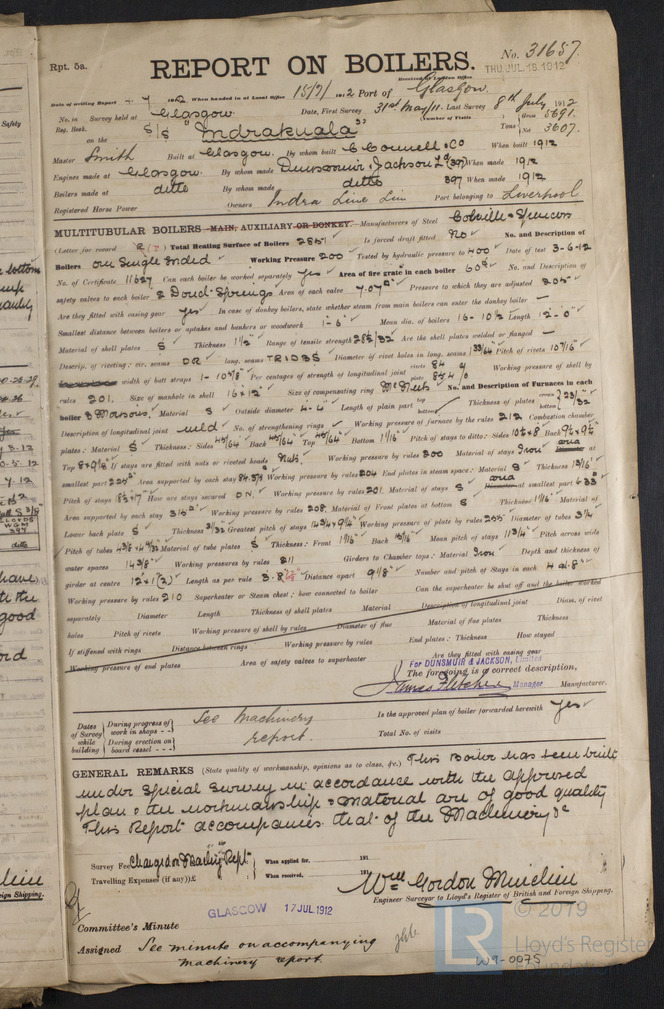 Rpt. 5a.
REPORT ON BOILERS.
No. 31657
Received at London Office
THU. JUL. 18. 1912
Date of writing Report 1912 When handed in at Local Office 15/7/ 1912 Port of Glasgow
No. in Survey held at Glasgow Date, First Survey 31st May/11 Last Survey 8th July 1912
Reg. Book.
(Number of Visits
on the S/S "Indrakuala" Tons { Gross 5691.
Net 3607.
Master Smith Built at Glasgow. By whom built C Connell & Co When built 1912
Engines made at Glasgow. By whom made Dunsmuir & Jackson Ld (397) When made 1912
Boilers made at ditto By whom made ditto 397 When made 1912
Registered Horse Power Owners Indra Line Lim Port belonging to Liverpool
MULTITUBULAR BOILERS MAIN, AUXILIARY OR DONKEY. Manufacturers of Steel Colville & Spencers
(Letter for record (S) Total Heating Surface of Boilers Is forced draft fitted No No. and Description of
Boilers one Single Ended Working Pressure 200 Tested by hydraulic pressure to 400 Date of test 3-6-12
No. of Certificate 11627 Can each boiler be worked separately yes Area of fire grate in each boiler 60 No. and Description of
safety valves to each boiler 2 Direct Springs Area of each valve 7.07 Pressure to which they are adjusted 205
Are they fitted with easing gear yes In case of donkey boilers, state whether steam from main boilers can enter the donkey boiler —
Smallest distance between boilers or uptakes and bunkers or woodwork 1-6 Mean dia. of boilers 16-10½ Length 12-0
Material of shell plates S Thickness 1½ Range of tensile strength 28½/32 Are the shell plates welded or flanged —
Descrip. of riveting: cir. seams DR long. seams TRIDBS Diameter of rivet holes in long. seams Pitch of rivets 10 7/16
width of butt straps Per centages of strength of longitudinal joint rivets plate Working pressure of shell by
rules 201. Size of manhole in shell 16 x 12 Size of compensating ring McNeils No. and Description of Furnaces in each
boiler 3 Morisons Material S Outside diameter 4-4 Length of plain part top bottom Thickness of plates crown bottom 21/32
Description of longitudinal joint weld No. of strengthening rings Working pressure of furnace by the rules 212 Combustion chamber
plates: Material S Thickness: Sides 45/64 Back 45/64 Top 45/64 Bottom 1 1/16 Pitch of stays to ditto: Sides 10½ x 8 Back 9½ x 9½
Top If stays are fitted with nuts or riveted heads Nuts Working pressure by rules 200 Material of stays Iron area at
smallest part Area supported by each stay Working pressure by rules 204 End plates in steam space: Material S Thickness 1 3/16
Pitch of stays How are stays secured DN. Working pressure by rules 201. Material of stays S area at smallest part
Area supported by each stay Working pressure by rules 208 Material of Front plates at bottom S Thickness 1 1/16 Material of
Lower back plate S Thickness Greatest pitch of stays Working pressure of plate by rules Diameter of tubes 3¼
Pitch of tubes Material of tube plates S Thickness: Front 1 1/16 Back 15/16 Mean pitch of stays 11¾ Pitch across wide
water spaces 14 3/8 Working pressures by rules 211 Girders to Chamber tops: Material Iron Depth and thickness of
girder at centre 12 x 1 (2) Length as per rule Distance apart 9 1/8 Number and pitch of Stays in each
Working pressure by rules 210 Superheater or Steam chest; how connected to boiler Can the superheater be shut off and the boiler worked
separately Diameter Length Thickness of shell plates Material Description of longitudinal joint Diam. of rivet
holes Pitch of rivets Working pressure of shell by rules Diameter of flue Material of flue plates Thickness
If stiffened with rings Distance between rings Working pressure by rules End plates: Thickness How stayed
Working pressure of end plates Area of safety valves to superheater Are they fitted with easing gear
For DUNSMUIR & JACKSON, Limited
The foregoing is a correct description,
James Fletcher Manager Manufacturer.
Dates of Survey while building { During progress of work in shops - - } See Machinery Is the approved plan of boiler forwarded herewith Yes
{ During erection on board vessel - - - } report. Total No. of visits
GENERAL REMARKS (State quality of workmanship, opinions as to class, &c.) This Boiler has been built
under special survey in accordance with the approved
plan & the workmanship & material are of good quality
This Report accompanies that of the Machinery &c
Survey Fee Charged on Machy Rept When applied for, 191
Travelling Expenses (if any) £ When received, 191
Wm Gordon
Engineer Surveyor to Lloyd's Register of British and Foreign Shipping.
GLASGOW 17 JUL 1912
Committee's Minute
Assigned See minute on accompanying
machinery report.
© 2019
LR Lloyd's Register
Foundation
W9-0075